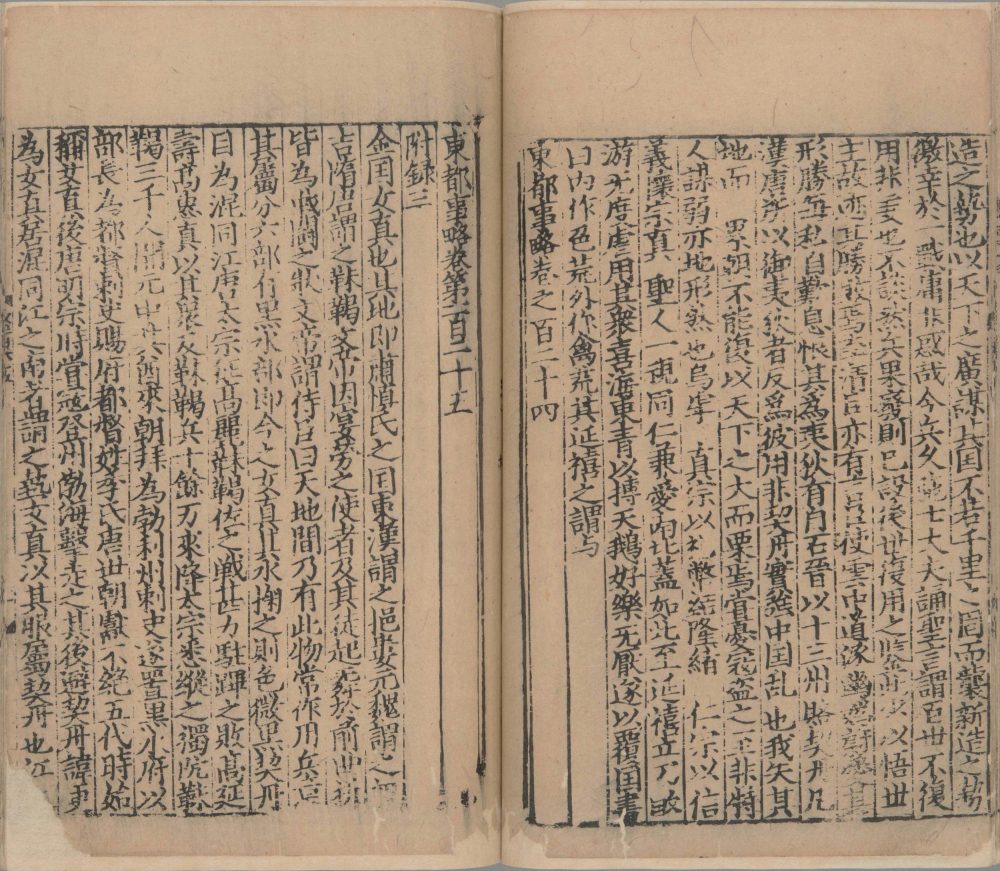 造之勢也以天下之廣謀其国不若千里之国而襲新造之勢
激辛於一戰庸非惑哉今兵久矣士大夫誦聖言謂百世不復
用非至也不談然矣果窮則已設後世復用之以悟世
主故亦互勝敗焉至有言亦有使雲中道涿
形勝無私自養息恨其為夷狄有門石晉以十三州賂契丹凡
漢唐所以御夷狄者反為彼用非契丹實能中国乱也我失其
地而 累朝不能復以天下之大而栗焉當憂冠盖之至非特
人謀弱亦地形然也烏虖 真宗以禮幣結隆緒 仁宗以信
義懌宗真 聖人一視同仁兼愛南北蓋如此至延禧立乃畋
游无度虐用其衆喜海東青以搏天鵝好樂无厭遂以覆国書
曰内作色荒外作禽荒其延禧之謂与
東都事略卷之百二十四
東都事略卷第一百二十五
附録三
金国女真也其地即肅慎氏之国東漢謂之挹婁元魏謂之
吉隋唐謂之靺鞨文帝因宴勞之使者及其徒起舞於前曲折
皆為戰鬪之狀文帝謂侍臣曰天地間乃有此物常作用兵意
其属分六部有黑水部即今之女真其水掬之則色微黑契丹
目為混同江唐太宗征高麗靺鞨佐之戰甚力駐蹕之敗高延
壽高惠真以其衆及靺鞨兵十餘万來降太宗悉縱之獨阬靺
鞨三千人開元中其酋來朝拜為勃利州刺史遂置黑水府以
部長為都督刺史賜府都督姓李氏唐世朝獻不絕五代時始
稱女真後唐明宗時嘗冦登州渤海擊走之其後避契丹諱更
為女直居混同江之南者謂之熟女真以其服属契丹也江